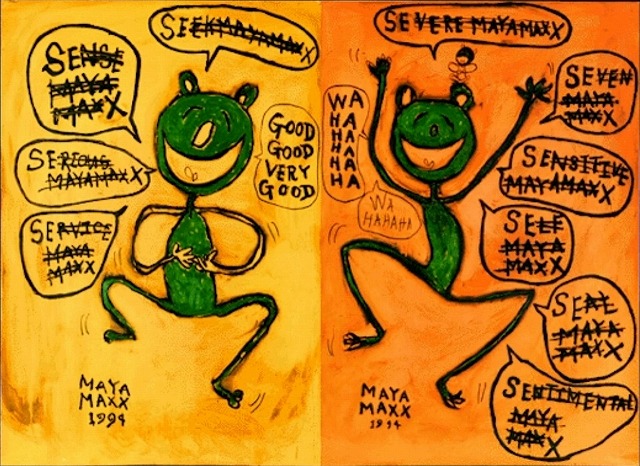 SEEKMAYAMAXX
SENSE
MAYA
MAXX
SERIOUS
MAYAMAXX
SERVICE
MAYA
MAXX
GOOD
GOOD
VERY
GOOD
MAYA
MAXX
1994
SEVERE MAYAMAXX
WA
HA
HA
HA
HA
HA
WA
HAHAHA
SEVEN
MAYA
MAXX
SENSITIVE
MAYAMAXX
SELF
MAYA
MAXX
SEAL
MAYA
MAXX
SENTIMENTAL
MAYA
MAXX
MAYA
MAXX
1994